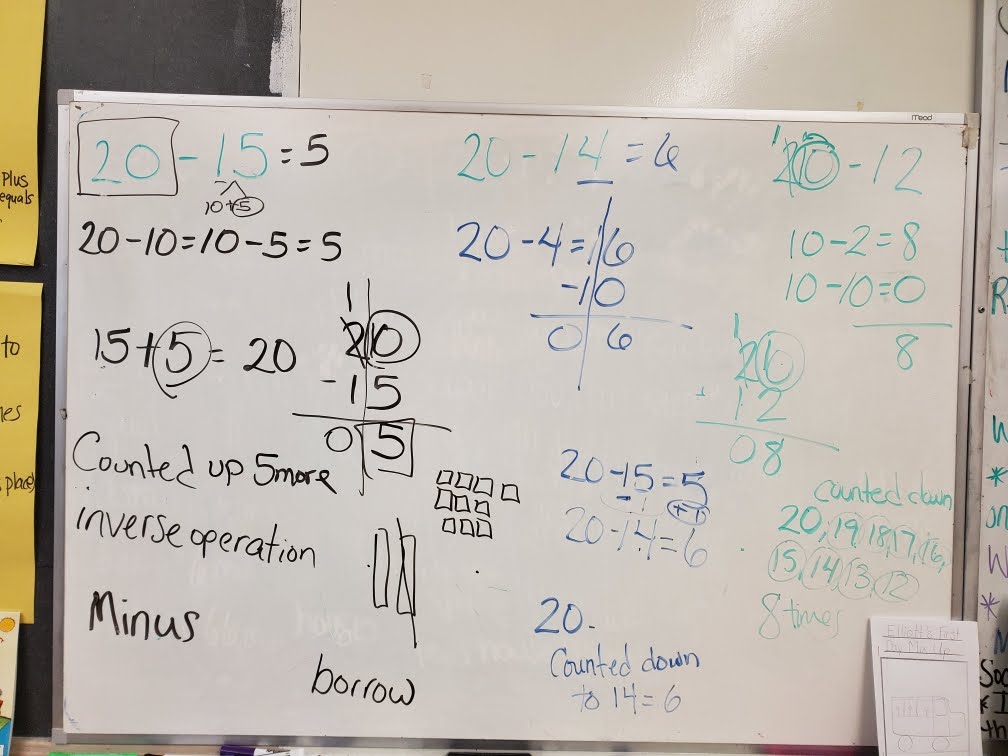 Plus
equals
to
place
mead
20 - 15 = 5
10 + 5
20 - 10 = 10 - 5 = 5
15 + 5 = 20
1
20
- 15
05
Counted up 5 more
inverse operation
Minus
borrow
20 - 14 = 6
20 - 4 = 16
- 10
0 6
20 - 15 = 5
- 1 + 1
20 - 14 = 6
20 -
Counted down
to 14 = 6
1
20 - 12
10 - 2 = 8
10 - 10 = 0
8
1
20
12
08
counted down
20, 19, 18, 17, 16,
15, 14, 13, 12
8 times
Elliott's First